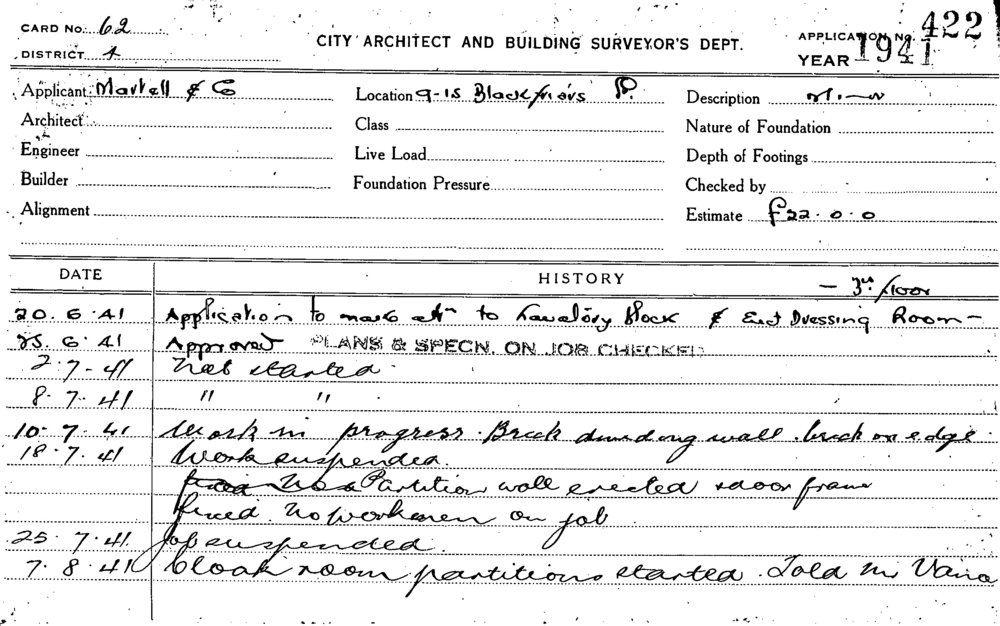 CARD No. 62
DISTRICT 4
CITY ARCHITECT AND BUILDING SURVEYOR'S DEPT.
APPLICATION No. 422
YEAR 1941
Applicant Martell & Co
Location 9-15 Blackfriars St.
Description Minor
Architect
Class
Nature of Foundation
Engineer
Live Load
Depth of Footings
Builder
Foundation Pressure
Checked by
Alignment
Estimate £22.0.0
DATE
HISTORY
20.6.41 Application to make altn to Lavatory Block & Dressing Room -
25.6.41 Approved PLANS & SPECN. ON JOB CHECKED
2-7-41 Not started.
8.7.41 " "
10-7.41 Work in progress. Brick dividing wall. brick on edge.
18.7.41 Work suspended.
Partition wall erected & door frame
fixed. No workmen on job.
25.7.41 Job suspended.
7.8.41 Cloak room partitions started. Told Mr